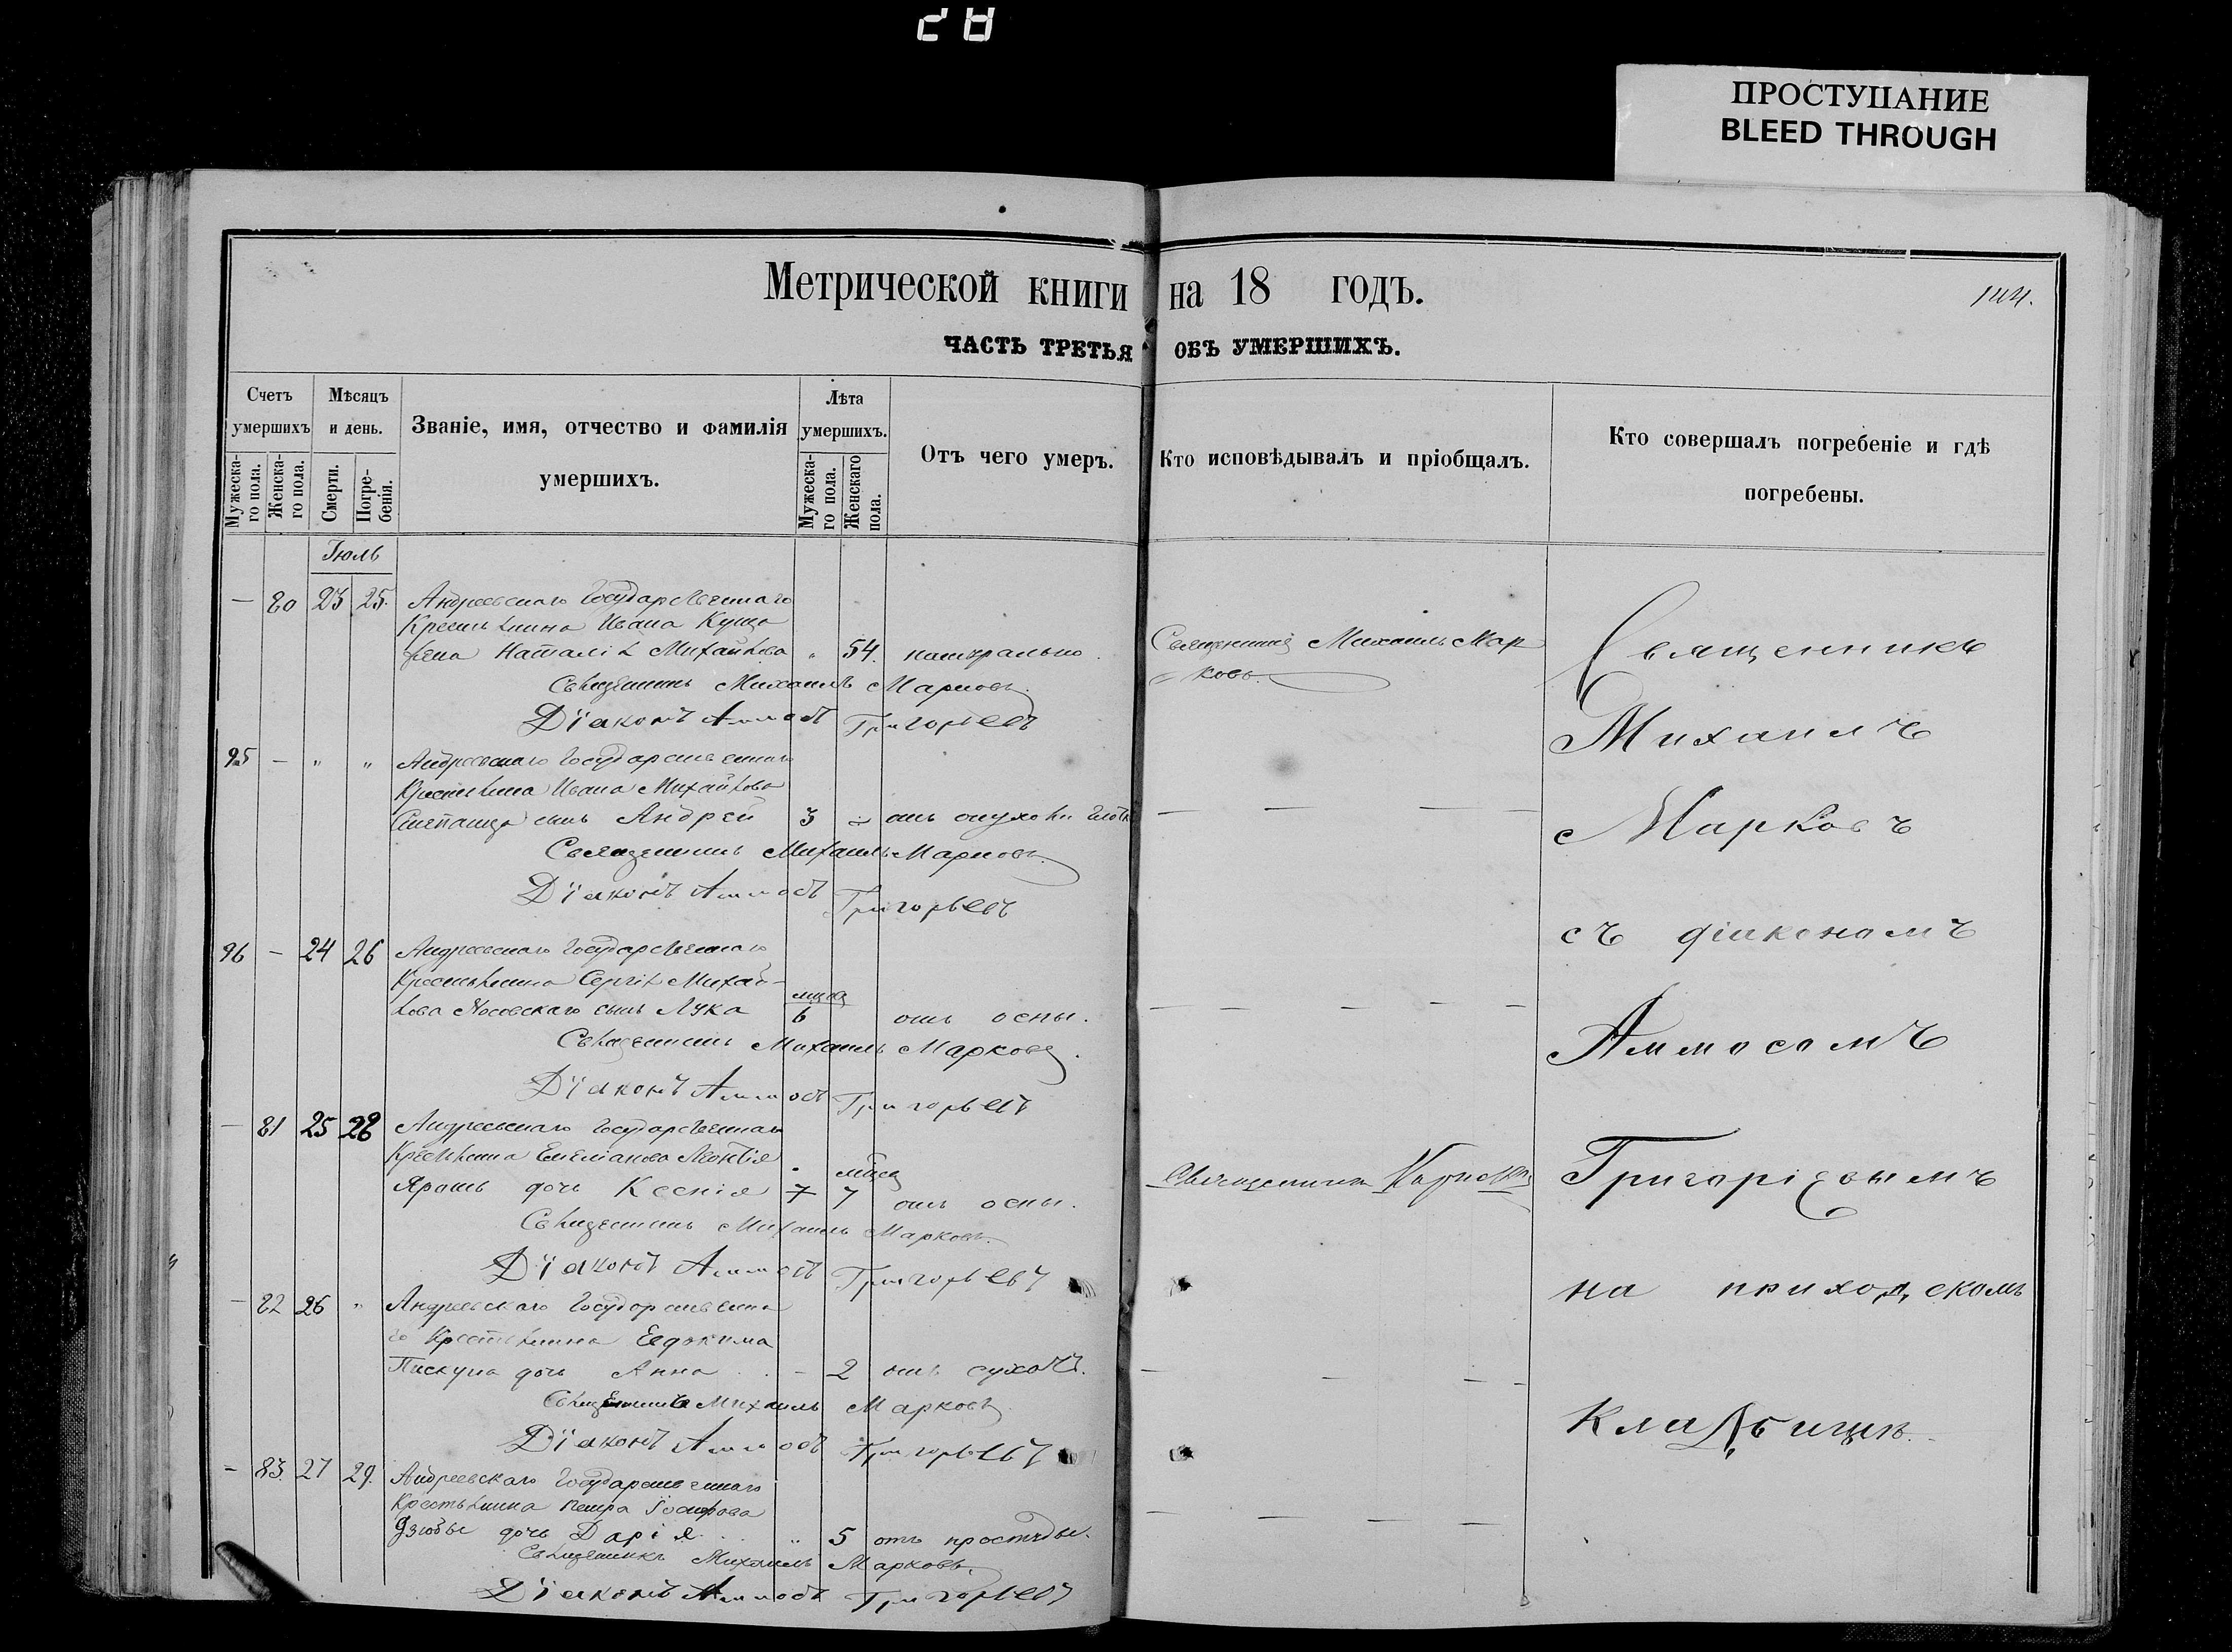 28
ПРОСТУПАНИЕ
BLEED THROUGH
Метрической книги на 18 годъ.
ЧАСТЬ ТРЕТЬЯ ОБЪ УМЕРШИХЪ.
Счетъ умершихъ
Мужеска-го пола.
Женска-го пола.
Мѣсяцъ и день.
Смерти.
Погре-бенія.
Званіе, имя, отчество и фамилія умершихъ.
Лѣта умершихъ.
Мужеска-го пола.
Женскаго пола.
Отъ чего умеръ.
Кто исповѣдывалъ и пріобщалъ.
Кто совершалъ погребеніе и гдѣ погребены.
Іюль
— 80 23 25. Андреевскаго Государственнаго
Крестьянина Ивана Куща
жена Наталія Михайлова " 54. натурально.
Священникъ Михаилъ Мар
ковъ.
Священникъ Михаилъ Марковъ.
Діаконъ Аммосъ Григорьевъ
95 — " " Андреевскаго Государственнаго
Крестьянина Ивана Михайлова
сынъ Андрей 3 " отъ опухоли
Священникъ Михаилъ Марковъ.
Діаконъ Аммосъ Григорьевъ
96 — 24 26 Андреевскаго Государственнаго
Крестьянина Сергія Михай-
лова Носовскаго сынъ Лука 6 отъ оспы.
Священникъ Михаилъ Марковъ.
Діаконъ Аммосъ Григорьевъ
— 81 25 28 Андреевскаго Государственнаго
Крестьянина Емеліанова Леонтія
Ярошъ дочь Ксенія 7 7 отъ оспы.
Священникъ Марковъ
Священникъ Михаилъ Марковъ.
Діаконъ Аммосъ Григорьевъ
— 82 26 " Андреевскаго Государственна
го Крестьянина Евдокима
Пискуна дочь Анна — 2 отъ сухотъ.
Священникъ Михаилъ Марковъ
Діаконъ Аммосъ Григорьевъ
— 83. 27 29. Андреевскаго Государственнаго
Крестьянина Петра Іосифова
Дзюбы дочь Дарія " 5 отъ простуды.
Священникъ Михаилъ Марковъ.
Діаконъ Аммосъ Григорьевъ
Священникъ
Михаилъ
Марковъ
съ діакономъ
Аммосомъ
Григоріевымъ
на приходскомъ
кладбищѣ.